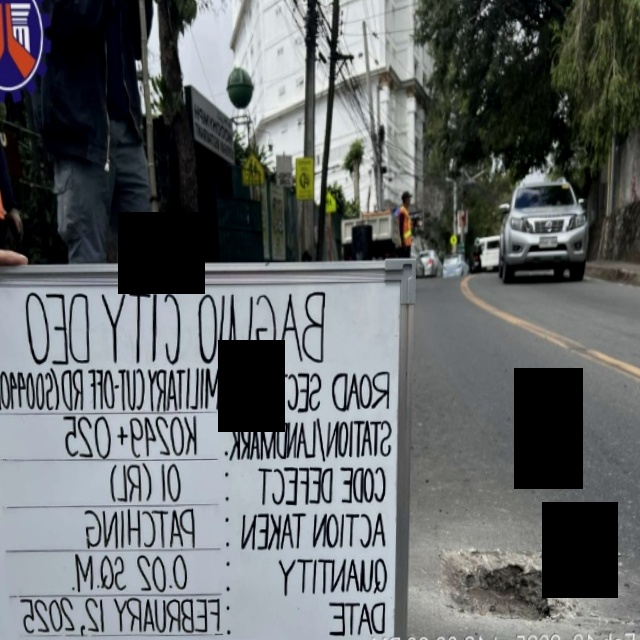 BAGUIO CITY DEO
ROAD SEC MILITARY CUT-OFF RD (S00440
STATION/LANDMARK: K0249+025
CODE DEFECT : 01 (RL)
ACTION TAKEN : PATCHING
QUANTITY : 0.02 SQ.M.
DATE : FEBRUARY 12, 2025